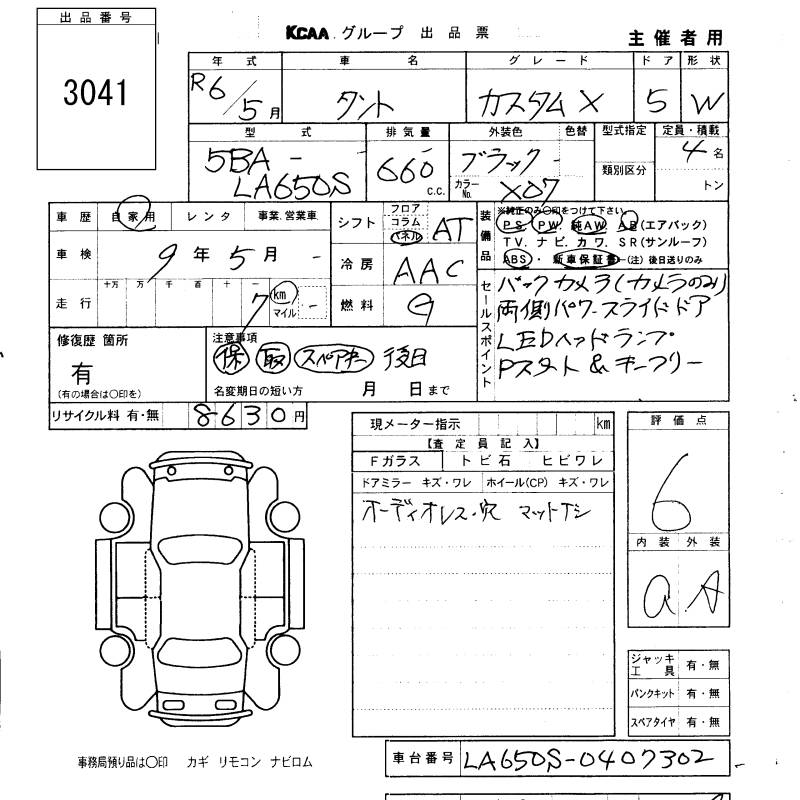 出品番号
3041
KCAA グループ 出品票
主催者用
年式 車名 グレード ドア 形状
R6/5月 タント カスタムX 5 W
型式 排気量 外装色 色替 型式指定 定員・積載
5BA- 660 c.c. ブラック 類別区分 4名
LA650S カラーNo. X07 トン
車歴 自家用 レンタ 事業.営業車
車検 9年5月
走行 十万 万 千 百 十 一
7 km マイル
シフト フロア コラム パネル AT
冷房 AAC
燃料 G
装備品 ※純正のみ○印をつけて下さい。
PS. PW. 純AW. AB(エアバック)
TV. ナビ. カワ. SR(サンルーフ)
ABS・新車保証書-(注)後日送りのみ
セールスポイント
バックカメラ(カメラのみ)
両側パワースライドドア
LEDヘッドランプ
Pスタート & キーフリー
修復歴 箇所
有
(有の場合は○印を)
注意事項
保 取 スペアキー 後日
名変期日の短い方 月 日まで
リサイクル料 有・無 8630円
現メーター指示 km
【査定員記入】
Fガラス トビ石 ヒビワレ
ドアミラー キズ・ワレ ホイール(CP) キズ・ワレ
オーディオレス・穴 マットナシ
評価点
6
内装 外装
a A
ジャッキ工具 有・無
パンクキット 有・無
スペアタイヤ 有・無
事務局預り品は○印 カギ リモコン ナビロム
車台番号 LA650S-0407302